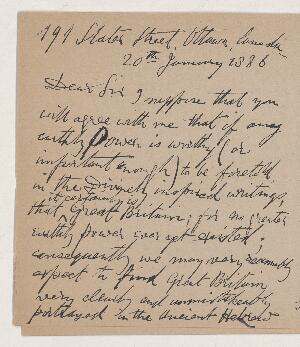 191 Slater Street, Ottawa, Canada
20th January 1886
Dear Sir I suppose that you
will agree with me that if any
earthly Power is worthy (or
important enough) to be foretold
in the Divinely inspired writings,
that it certainly is Great Britain; for no greater
earthly power ever yet existed;
consequently we may very reasonably
expect to find Great Britain
very clearly and unmistakeably
portrayed in the ancient Hebrew